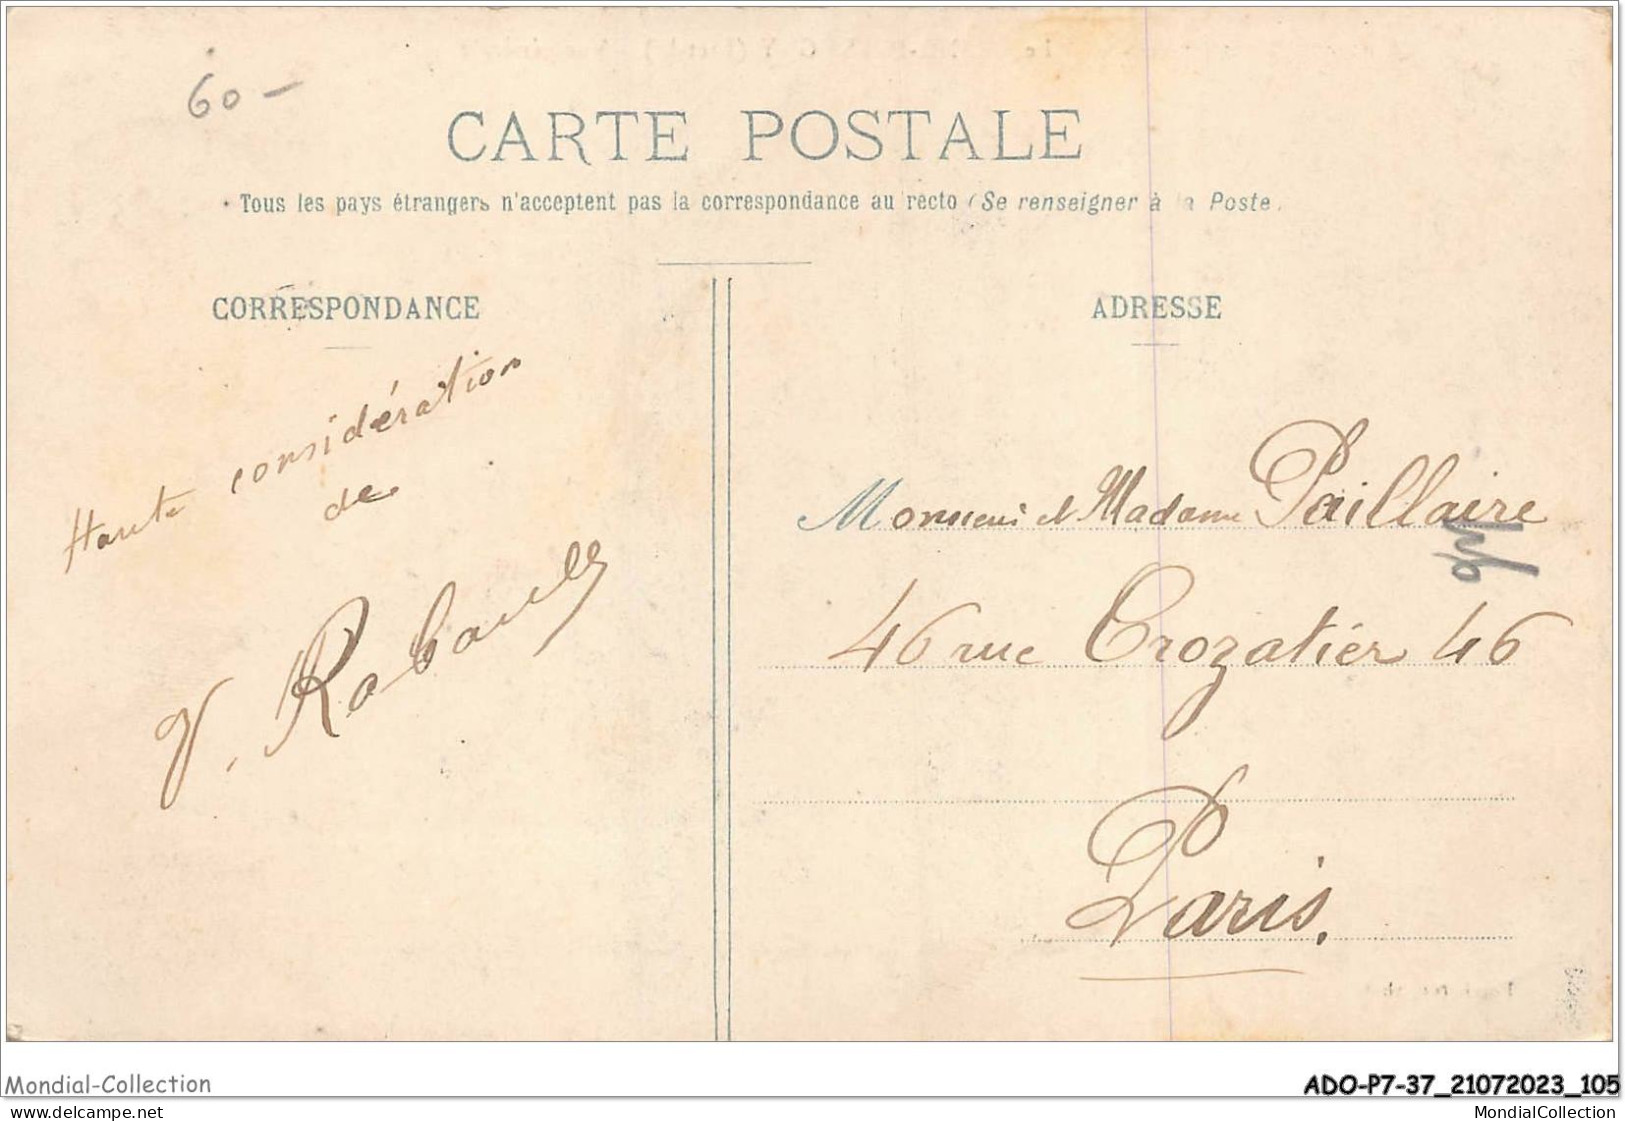 60 -
CARTE POSTALE
Tous les pays étrangers n'acceptent pas la correspondance au recto (Se renseigner à la Poste.
CORRESPONDANCE
Haute considération
de
V. Rabault
ADRESSE
Monsieur et Madame Paillaire
46 rue Crozatier 46
Paris.
Mondial-Collection
ADO-P7-37_21072023_105
www.delcampe.net
MondialCollection